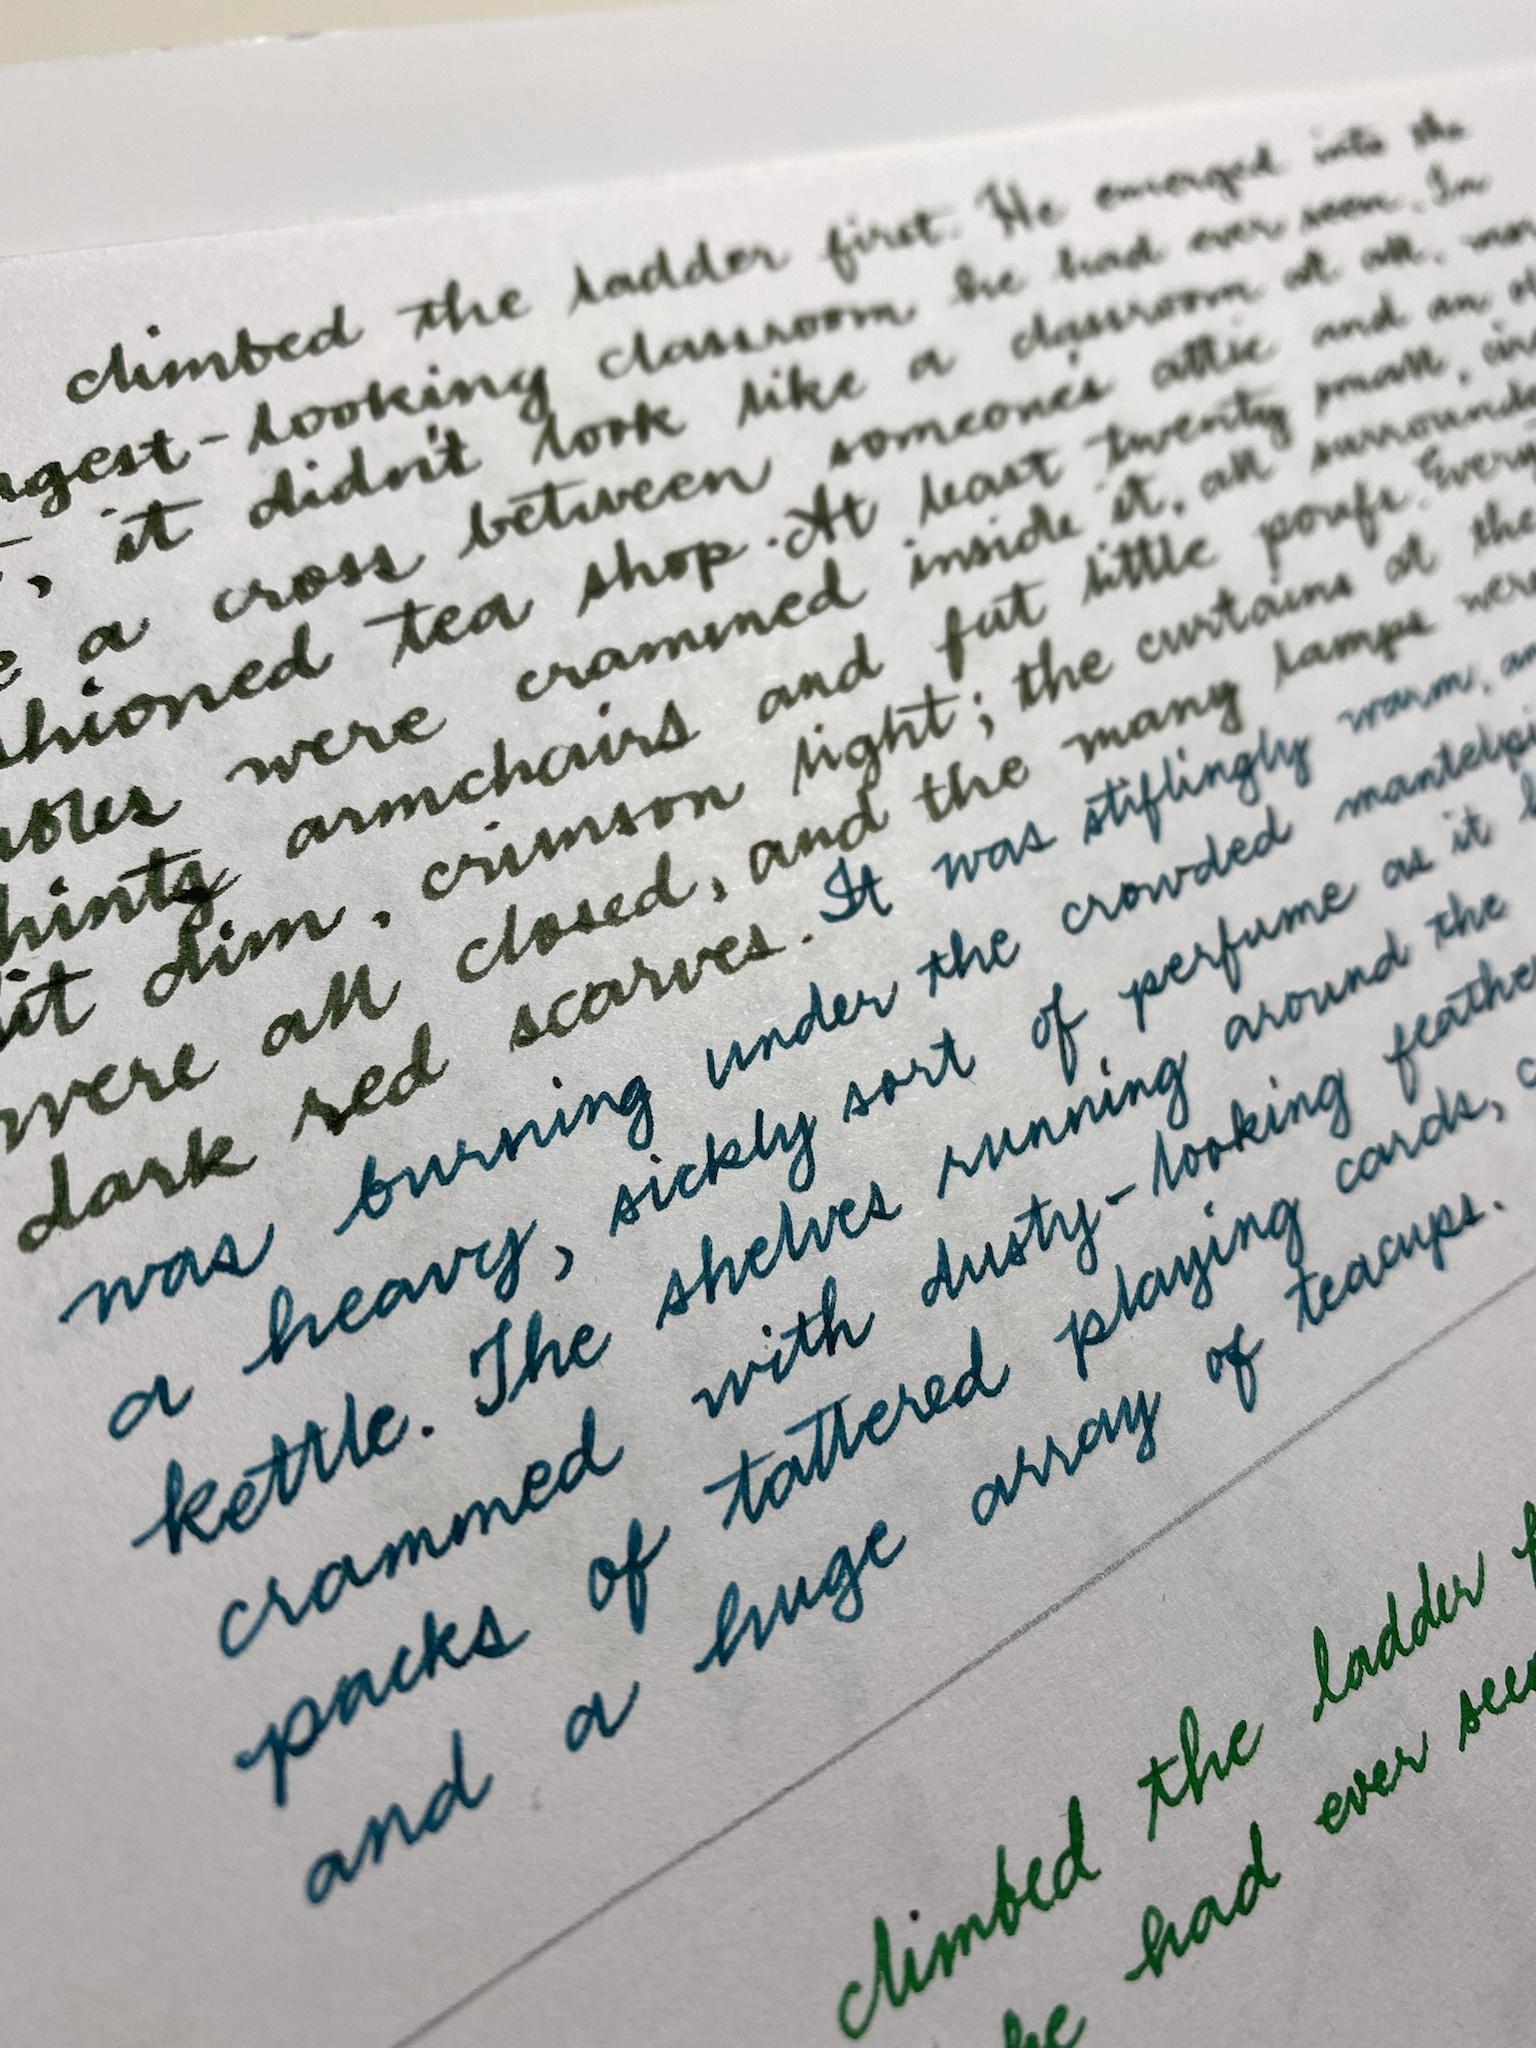 climbed the ladder first. He emerged into the
ngest-looking classroom he had ever seen. In
it didn't look like a classroom at all, mor
a cross between someone's attic and an ol
shioned tea shop. At least twenty small, circ
ables were crammed inside it, all surrounde
hintz armchairs and fat little poufs. Everyt
it dim, crimson light; the curtains at the
were all closed, and the many lamps were
dark red scarves. It was stiflingly warm, an
was burning under the crowded mantelpi
a heavy, sickly sort of perfume as it h
kettle. The shelves running around the
crammed with dusty-looking feathe
packs of tattered playing cards, c
and a huge array of teacups.
climbed the ladder f
he had ever seen